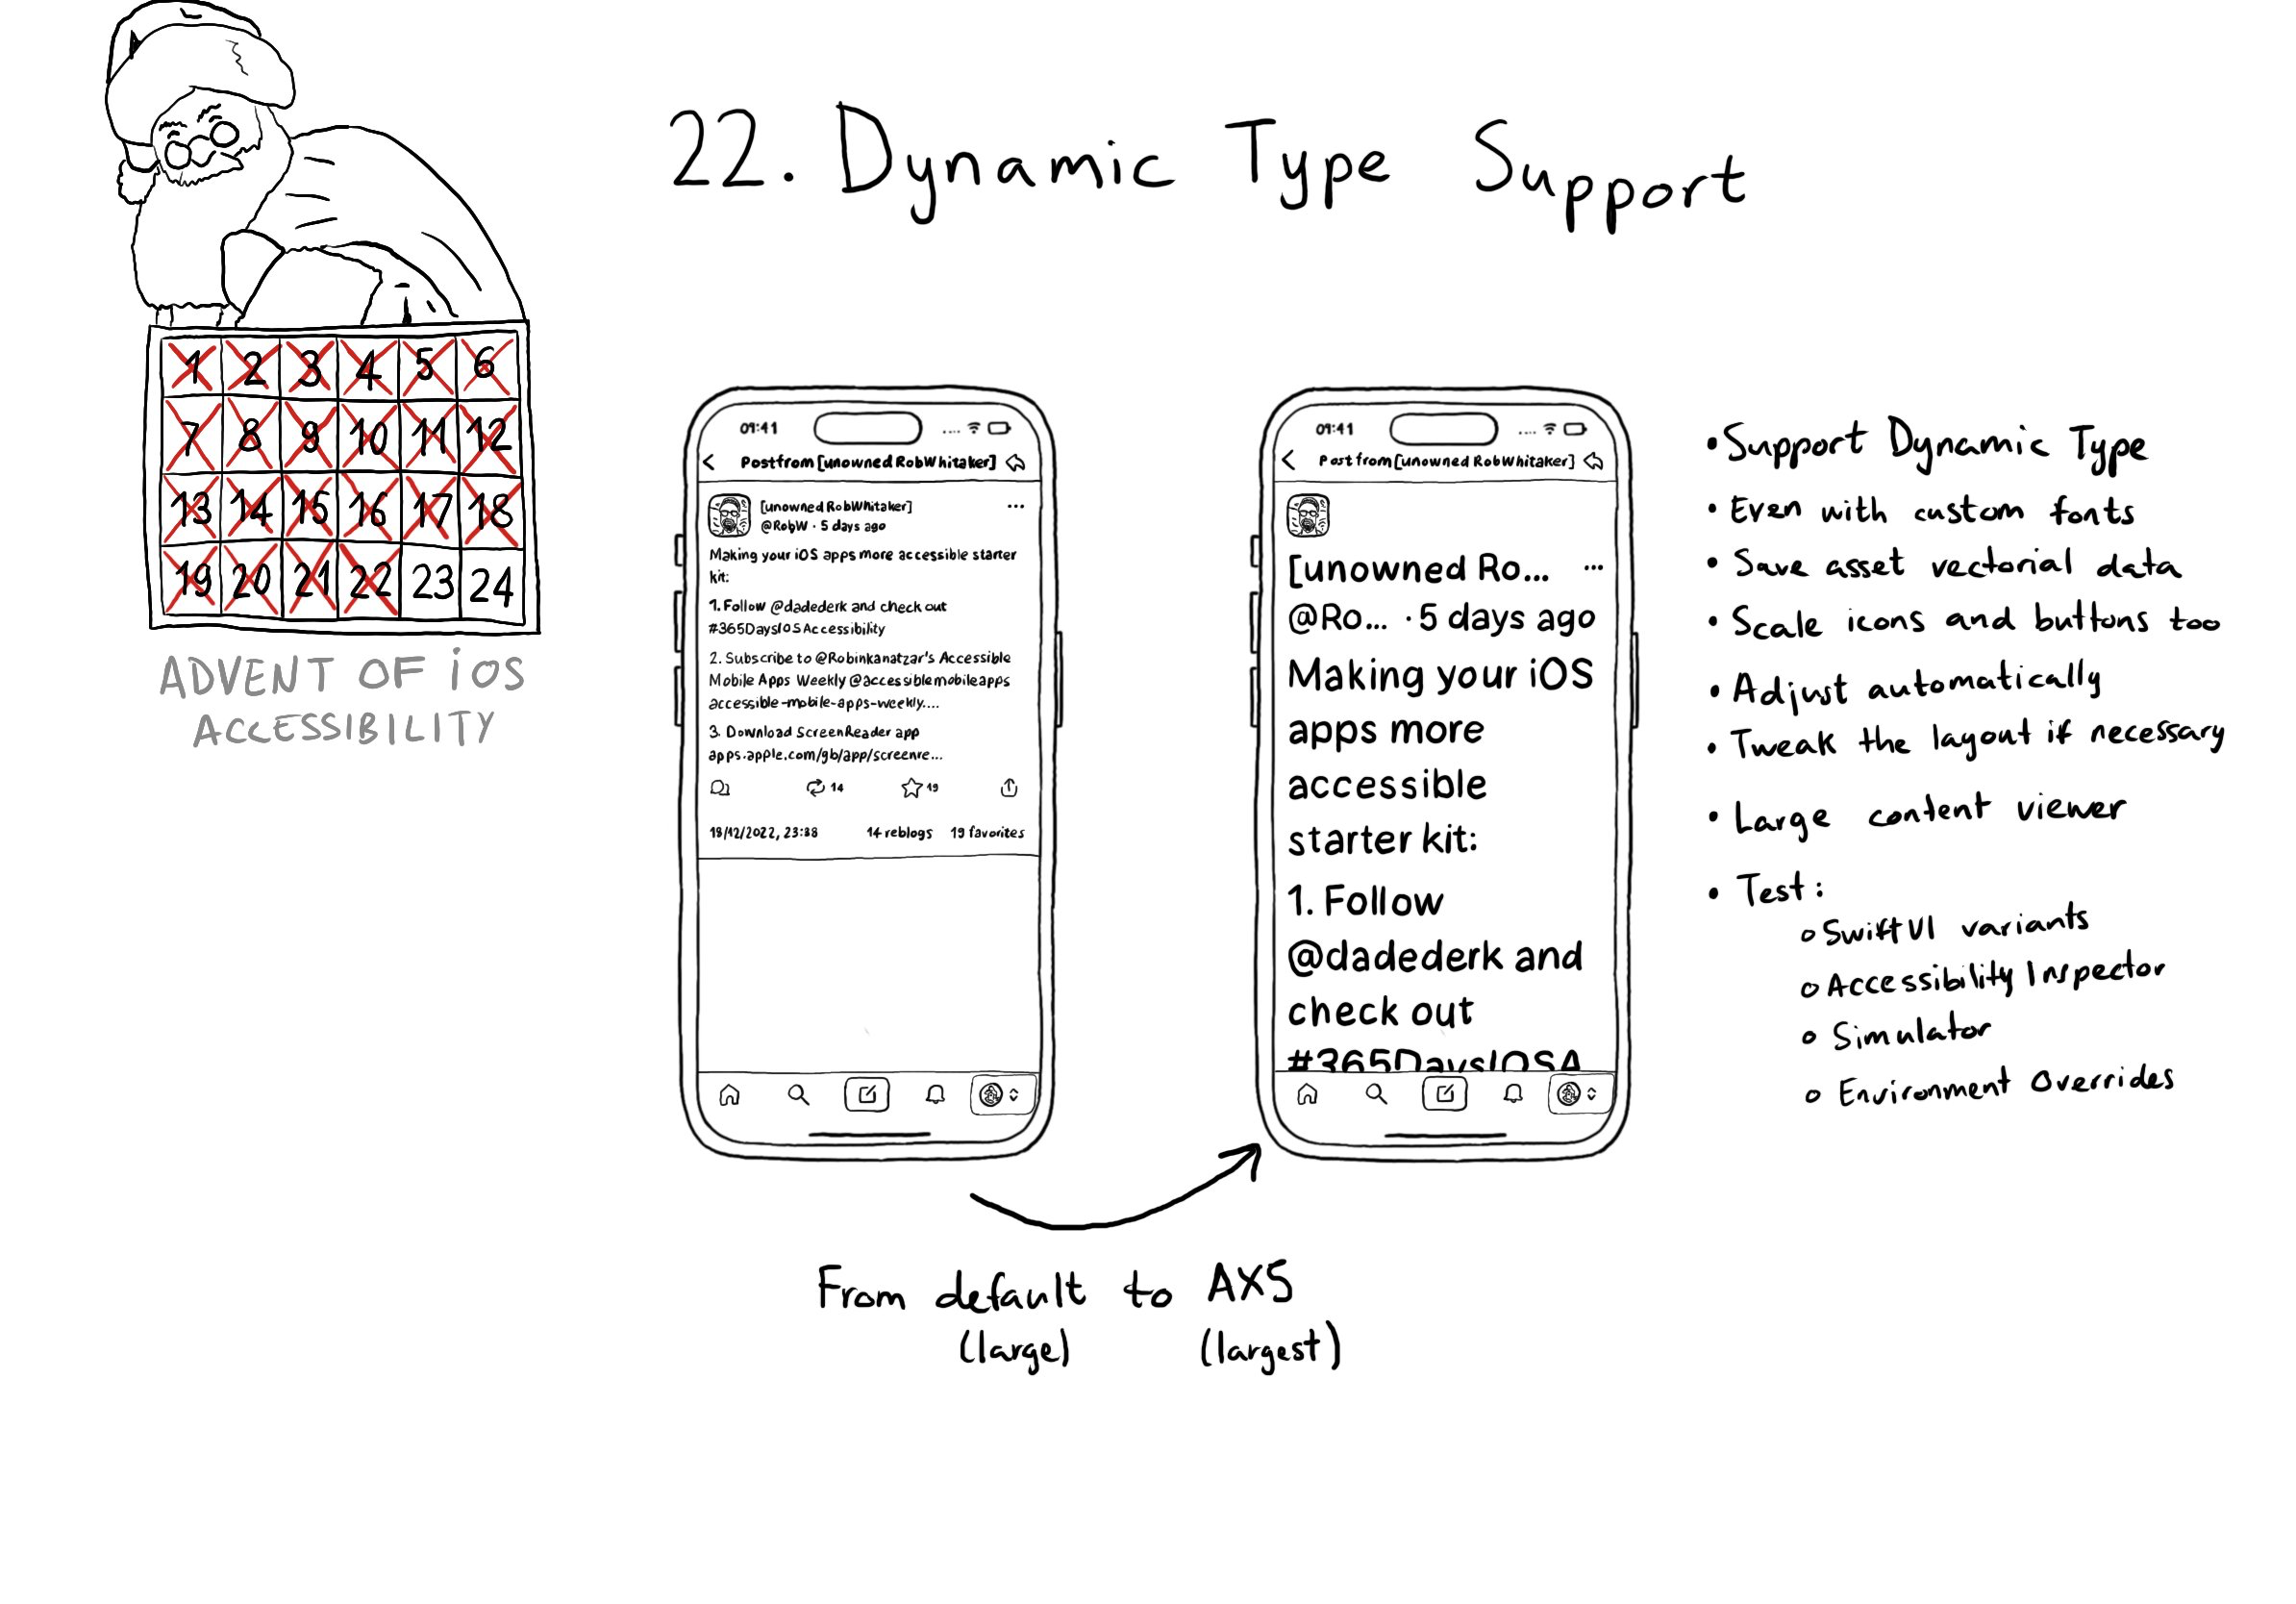 22. Dynamic Type Support
1 2 3 4 5 6
7 8 9 10 11 12
13 14 15 16 17 18
19 20 21 22 23 24
ADVENT OF iOS
ACCESSIBILITY
09:41
Post from [unowned RobWhitaker]
[unowned RobWhitaker]
@RobW · 5 days ago
...
Making your iOS apps more accessible starter
kit:
1. Follow @dadederk and check out
#365DaysIOSAccessibility
2. Subscribe to @Robinkanatzar's Accessible
Mobile Apps Weekly @accessiblemobileapps
accessible-mobile-apps-weekly....
3. Download ScreenReader app
apps.apple.com/gb/app/screenre...
14 19
18/12/2022, 23:38 14 reblogs 19 favorites
09:41
Post from [unowned RobWhitaker]
[unowned Ro... ...
@Ro... · 5 days ago
Making your iOS
apps more
accessible
starter kit:
1. Follow
@dadederk and
check out
#365DaysIOSA
• Support Dynamic Type
• Even with custom fonts
• Save asset vectorial data
• Scale icons and buttons too
• Adjust automatically
• Tweak the layout if necessary
• Large content viewer
• Test:
o SwiftUI variants
o Accessibility Inspector
o Simulator
o Environment Overrides
From default to AX5
(large) (largest)